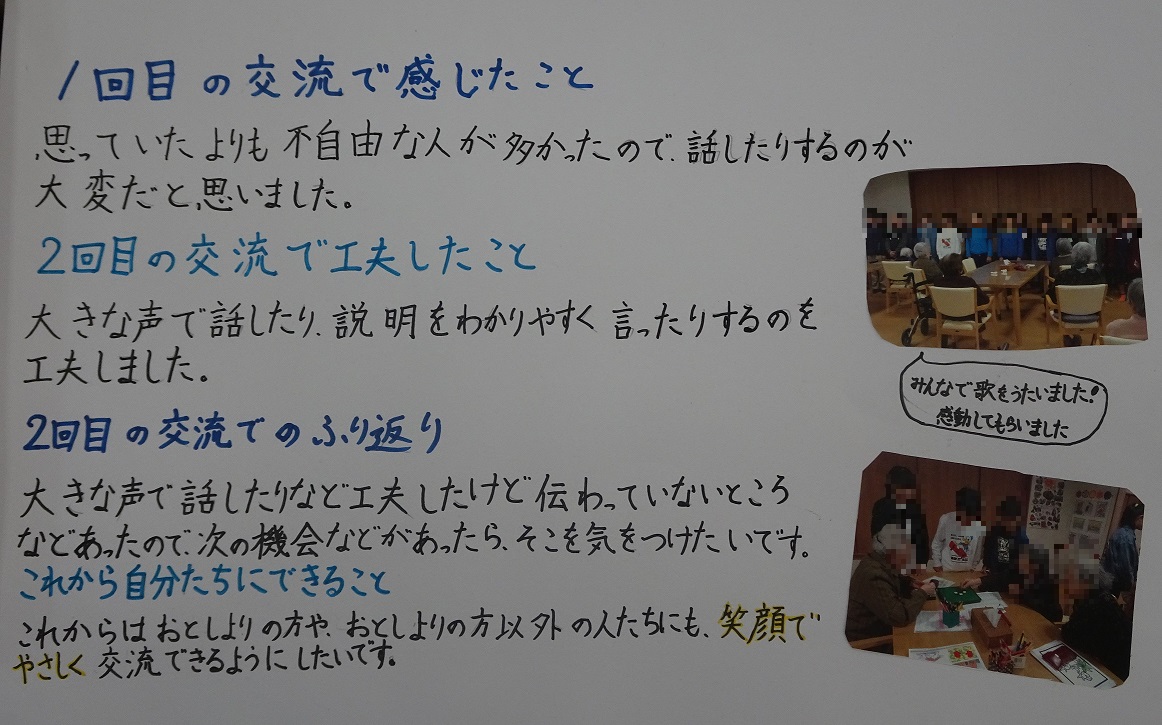 1回目の交流で感じたこと
思っていたよりも不自由な人が多かったので、話したりするのが
大変だと、思いました。
2回目の交流で工夫したこと
大きな声で話したり、説明をわかりやすく言ったりするのを
工夫しました。
2回目の交流でのふり返り
大きな声で話したりなど工夫したけど伝わっていないところ
などあったので、次の機会などがあったら、そこを気をつけたいです。
これから自分たちにできること
これからはおとしよりの方や、おとしよりの方以外の人たちにも、笑顔で
やさしく交流できるようにしたいです。
みんなで歌をうたいました!
感動してもらいました